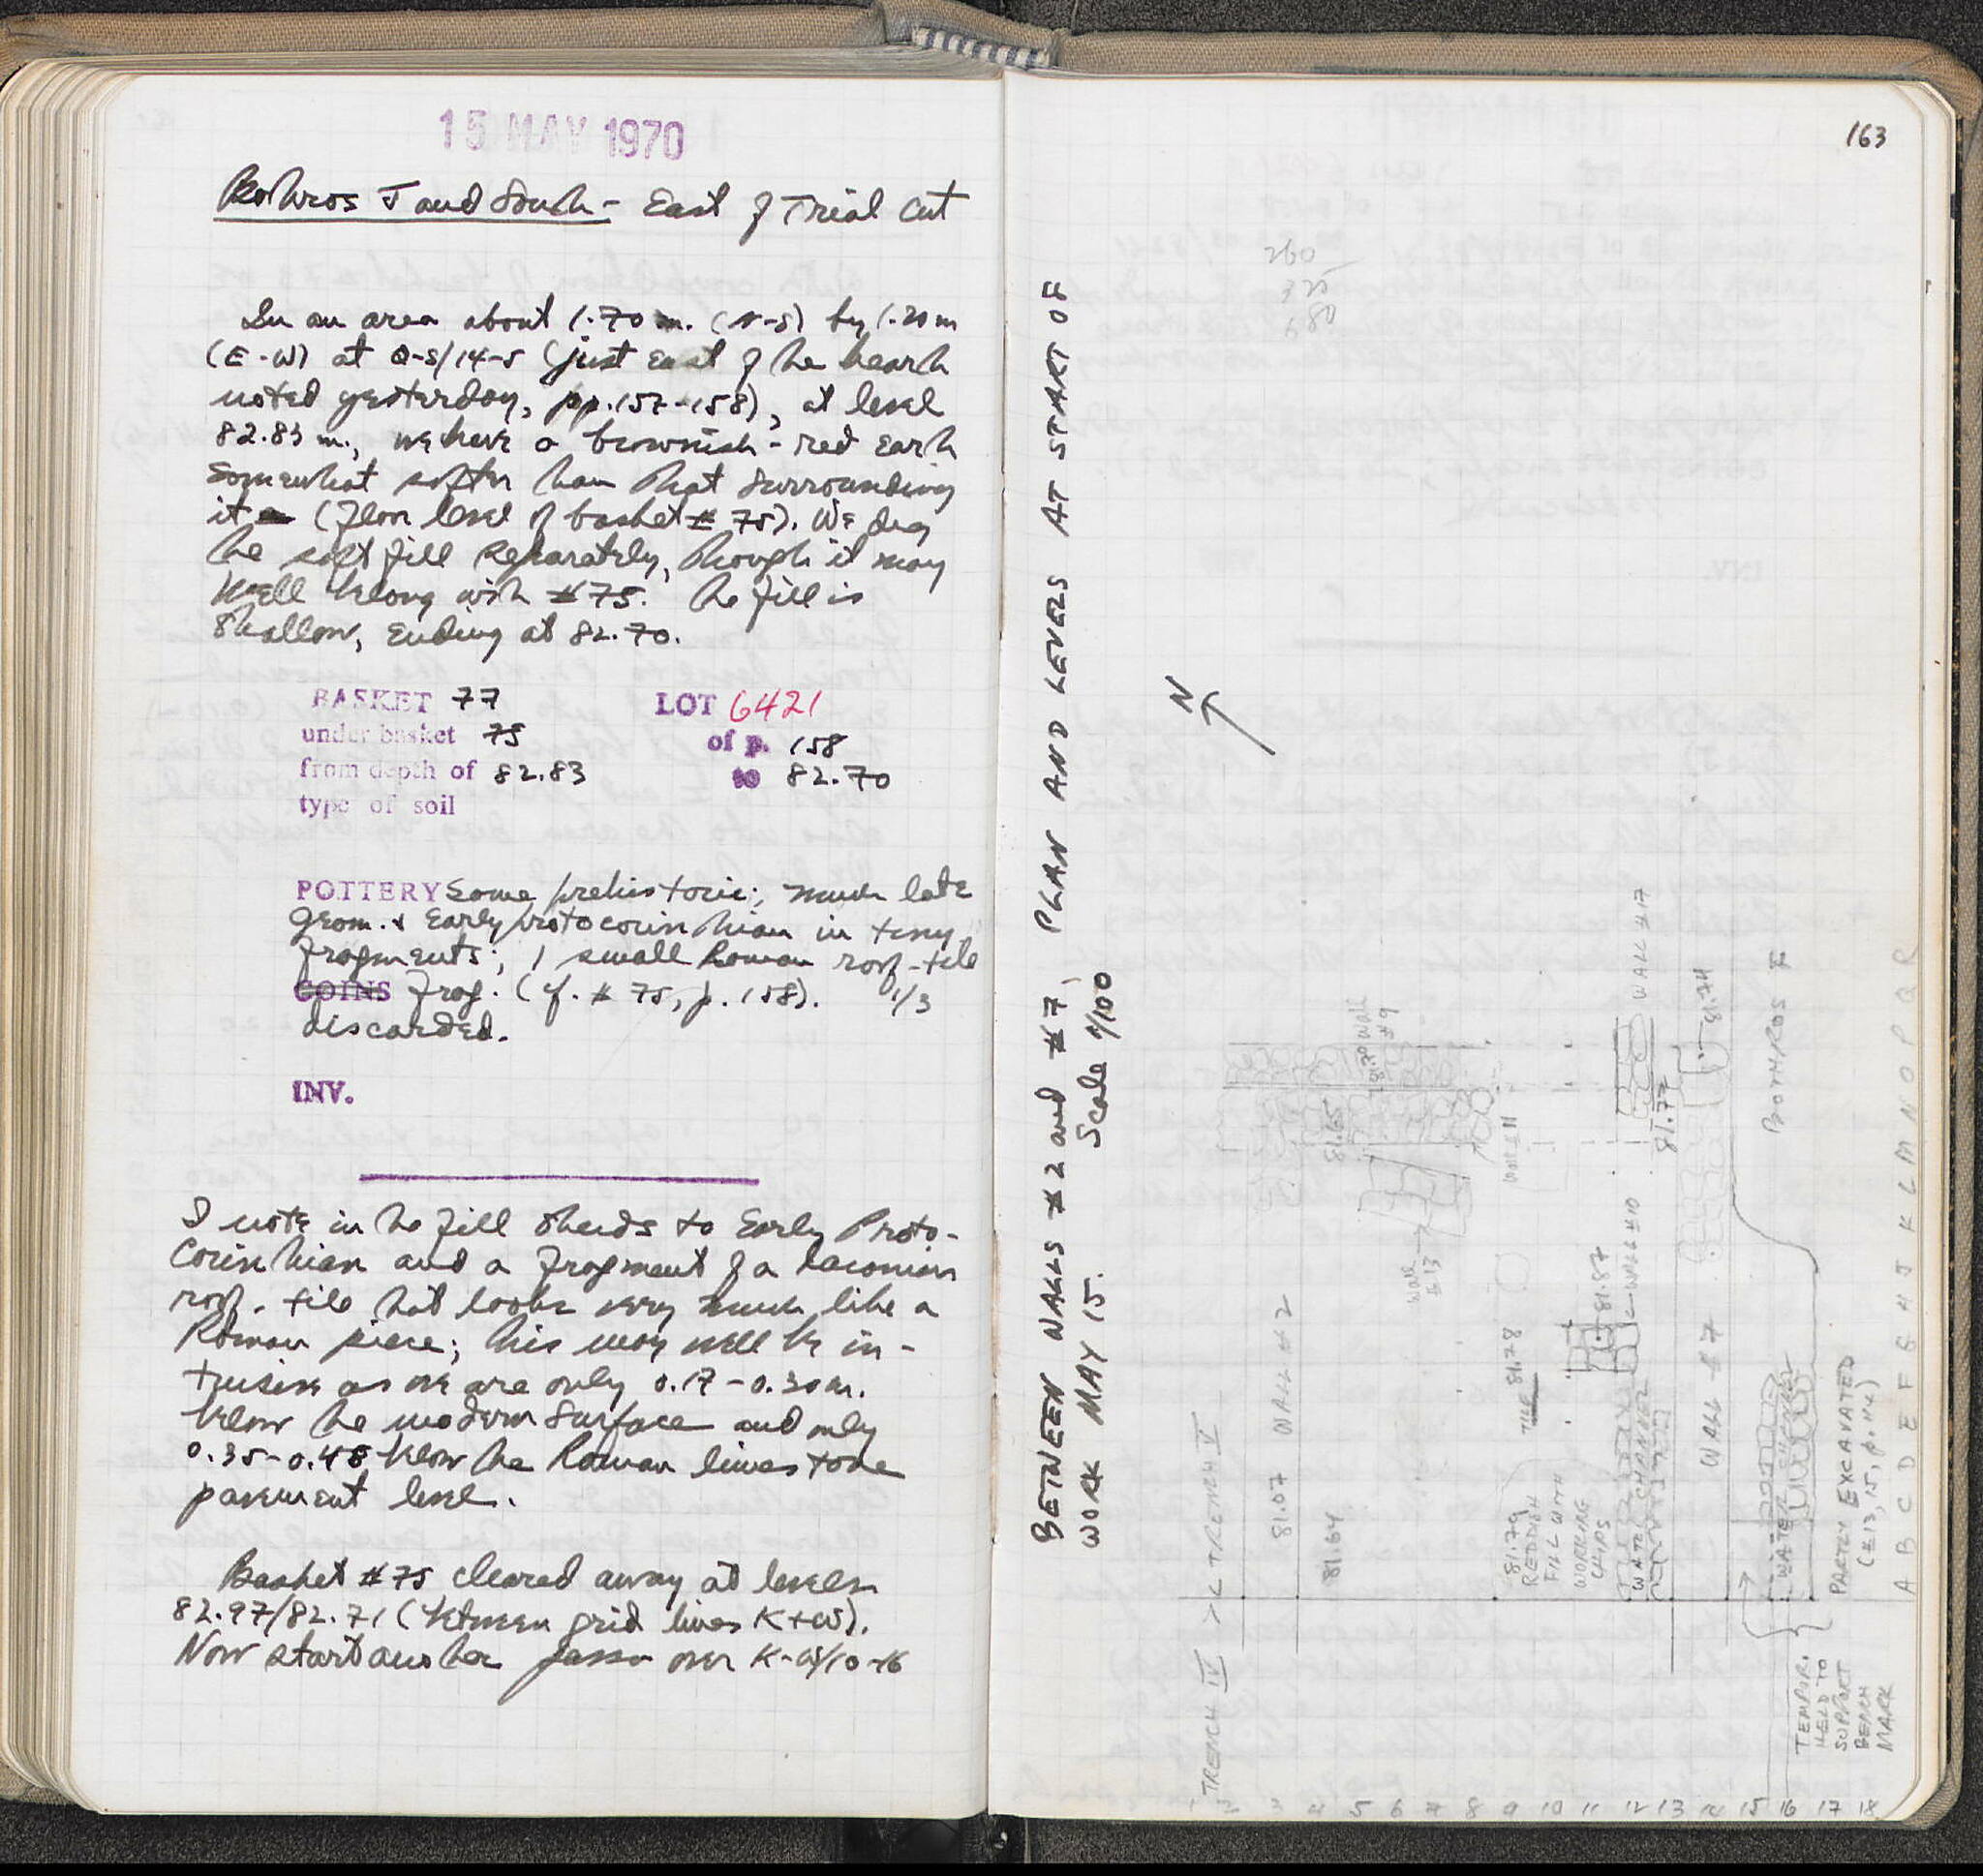 15 MAY 1970
Bothros J and South - East of Trial Cut
In an area about 1.70 m. (N-S) by 1.20 m
(E-W) at Q-S/14-5 (just east of the hearth
noted yesterday, pp. 157-158), at level
82.83 m., we have a brownish-red earth
somewhat softer than that surrounding
it (floor level of basket # 75). We dug
the soft fill separately, though it may
well belong with #75. The fill is
shallow, ending at 82.70.
BASKET 77 LOT 6421
under basket 75 of p. 158
from depth of 82.83 to 82.70
type of soil
POTTERY Some prehistoric; much late
Geom. & Early Protocorinthian in tiny
fragments; 1 small Roman roof-tile
COINS frag. (cf. # 75, p. 158). 1/3
discarded.
INV.
I note in the fill sherds to Early Proto-
corinthian and a fragment of a Laconian
roof-tile that looks very much like a
Roman piece; this may well be in-
trusive as we are only 0.17-0.30 m.
below the modern surface and only
0.35-0.48 below the Roman limestone
pavement level.
Basket #75 cleared away at levels
82.97/82.71 (between grid lines K+W).
Now start another pass over K-W/10-16
163
260
BETWEEN WALLS #2 and #7, PLAN AND LEVELS AT START OF
WORK MAY 15. Scale 1/100
N
TRENCH IV >< TRENCH V
81.07 WALL #2
81.64
81.65
81.30 Wall
#9
Wall
#13
Wall #11
TILE 81.78
81.79
REDDISH
FILL WITH
WORKING
CHIPS
81.87
WALL #10
WATER CHANNEL
WALL #17
81.77
81.74
WALL #7
BOTHROS F
WATER
PARTLY EXCAVATED
(#13, 15, p. 114)
TEMPOR.
HELD TO
SUPPORT
BENCH
MARK
A B C D E F G H J K L M N O P Q R
2 3 4 5 6 7 8 9 10 11 12 13 14 15 16 17 18